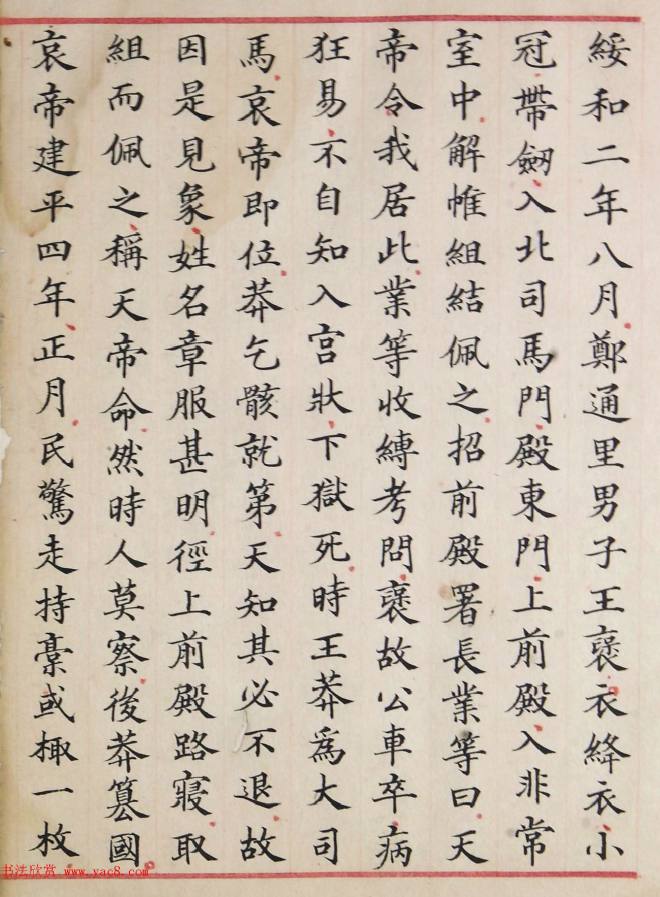 綏和二年八月鄭通里男子王褒衣絳衣小
冠帶劒入北司馬門殿東門上前殿入非常
室中解帷組結佩之招前殿署長業等曰天
帝令我居此業等收縛考問褒故公車卒病
狂易不自知入宮狀下獄死時王莽爲大司
馬哀帝即位莽乞骸就第天知其必不退故
因是見象姓名章服甚明徑上前殿路寢取
組而佩之稱天帝命然時人莫察後莽篡國
哀帝建平四年正月民驚走持稾或掫一枚
书法欣赏 www.yac8.com